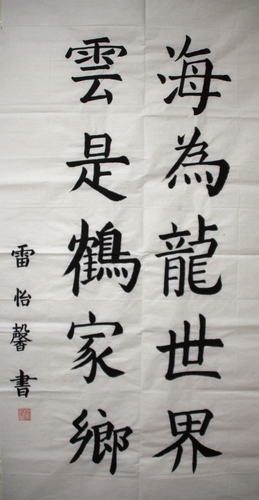 海為龍世界
雲是鶴家鄉
雷怡馨書